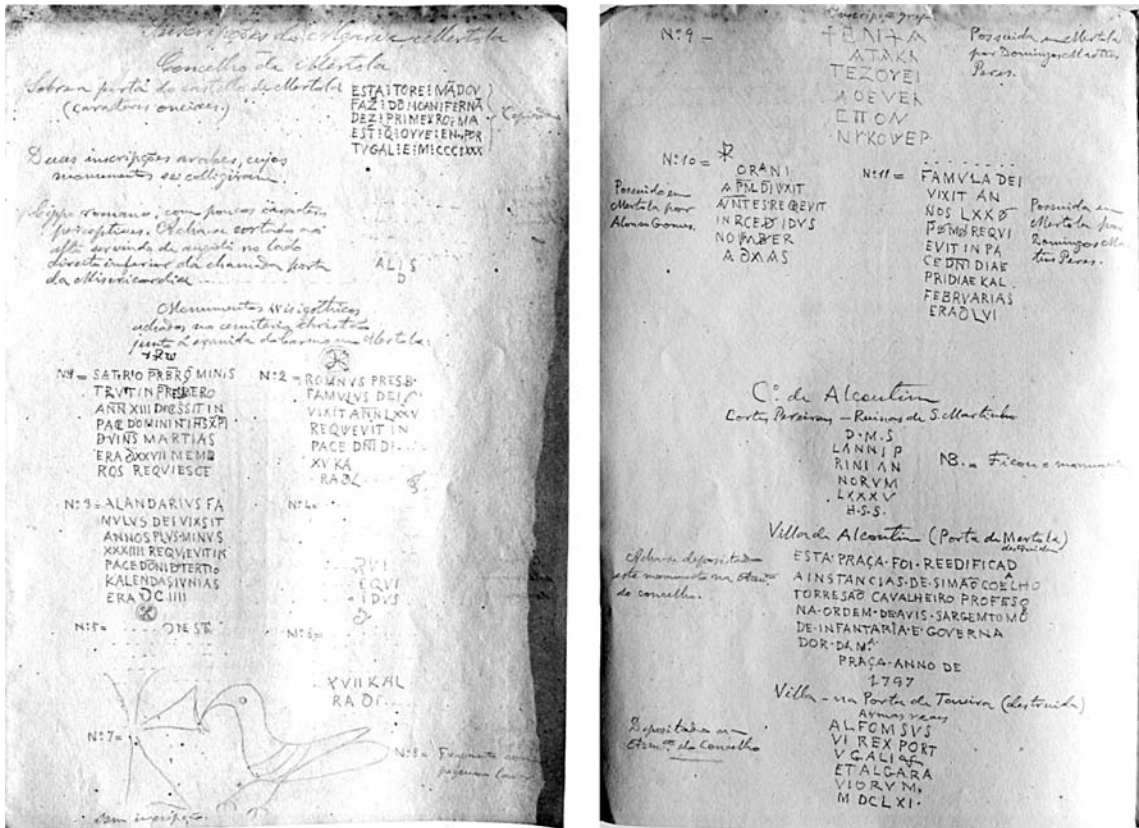 Inscripções do Algarve e Mertola
Concelho da Mértola
Sobre a porta do castello de Mertola
(caracteres oneiaes)
ESTA⁝TORE⁝MÃDOV
FAZ⁝DÕ⁝IOAN⁝FERNÃ
DEZ⁝PRIMEYRO⁝MA
EST⁝Q⁝OVVE⁝EN⁝POR
TVGAL⁝E⁝M⁝CCC⁝XXX
Copiada
Duas inscripções arabes, cujos
monumentos se colligiram.
Cippo romano, com poucos caracteres
perceptiveis. Acha-se cortado na
servindo de no lado
direito inferior da chamada porta
da Misericordia
ALIS
D
Monumentos Wisigothicos
achados no cemiterio christão
junto á ermida do Carmo em Mertola:
Nº1 = SATIRIO PRBRO MINIS
TRVIT IN PRESBERO
ANN XIII DICESSIT IN
PACE DOMINI NI IHS XPI
D VINS MARTIAS
ERA DXXVII MEMO
ROS REQVIESCE
Nº2 = ROMNVS PRESB·
FAMVLVS DEI
VIXIT ANN LXXV
REQVEVIT IN
PACE DNI DI....
XV KA
RA DL...
Nº3 = ALANDARIVS FA
MVLVS DEI VIXSIT
ANNOS PLVS·MINVS
XXXIIII REQVIEVIT IN
PACE DONI D TERTIO
KALENDAS IVNIAS
ERA DC IIII
Nº4 =
RVI
EQVI
IDVS
Nº5 = ..... NEST
Nº6 =
XVII KAL
RA DC...
Nº7 =
sem inscripção.
Nº8 = Fragmento com
pequeno lavor
Inscripção grega
Nº9 –
+ENTA
ATAKI
TEZOYEI
AOEVEK
EΠON
NYKOVEP
Possuida em Mertola
por Domingos Martins
Peres.
Nº10 =
ORANI
A FMLDI VXIT
ANTES REQEVIT
IN RCE D IDVS
NOMBER
A DXAS
Possuido em
Mertola por
Alonso Gomes.
Nº11 =
FAMVLA DEI
VIXIT AN
NOS LXXØ
PØMØ REQVI
EVIT IN PA
CE DNI DIAE
PRIDIAE KAL
FEBRVARIAS
ERA DLVI
Possuida em
Mertola por
Domingos Mar
tins Peres.
Cº. de Alcoutim
Cortes Pereiras – Ruinas de S. Martinho
D·M·S
LANNI P
RINI AN
NORVM
LXXXV
H·S·S·
NB. = Ficou o monum
Villa de Alcoutim (Porta de Mertola)
destruida
Acha-se depositado
este monumento na
do concelho.
ESTA·PRAÇA·FOI·REEDIFICAD
A INSTANCIAS·DE·SIMÃO COELHO
TORRESÃO CAVALHEIRO PROFESO
NA·ORDEM·DEAVIS·SARGEMTO MÔ
DE·INFANTARIA·E·GOVERNA
DOR·DA Mᴬ
PRAÇA·ANNO DE
1797
Villa – na Porta de Tavira (destruida)
Armas reaes
Depositado em
do Concelho
ALFOMSVS
VI REX PORT
VGALIAE
ET ALGARA
VIORVM,
M DCLXI·